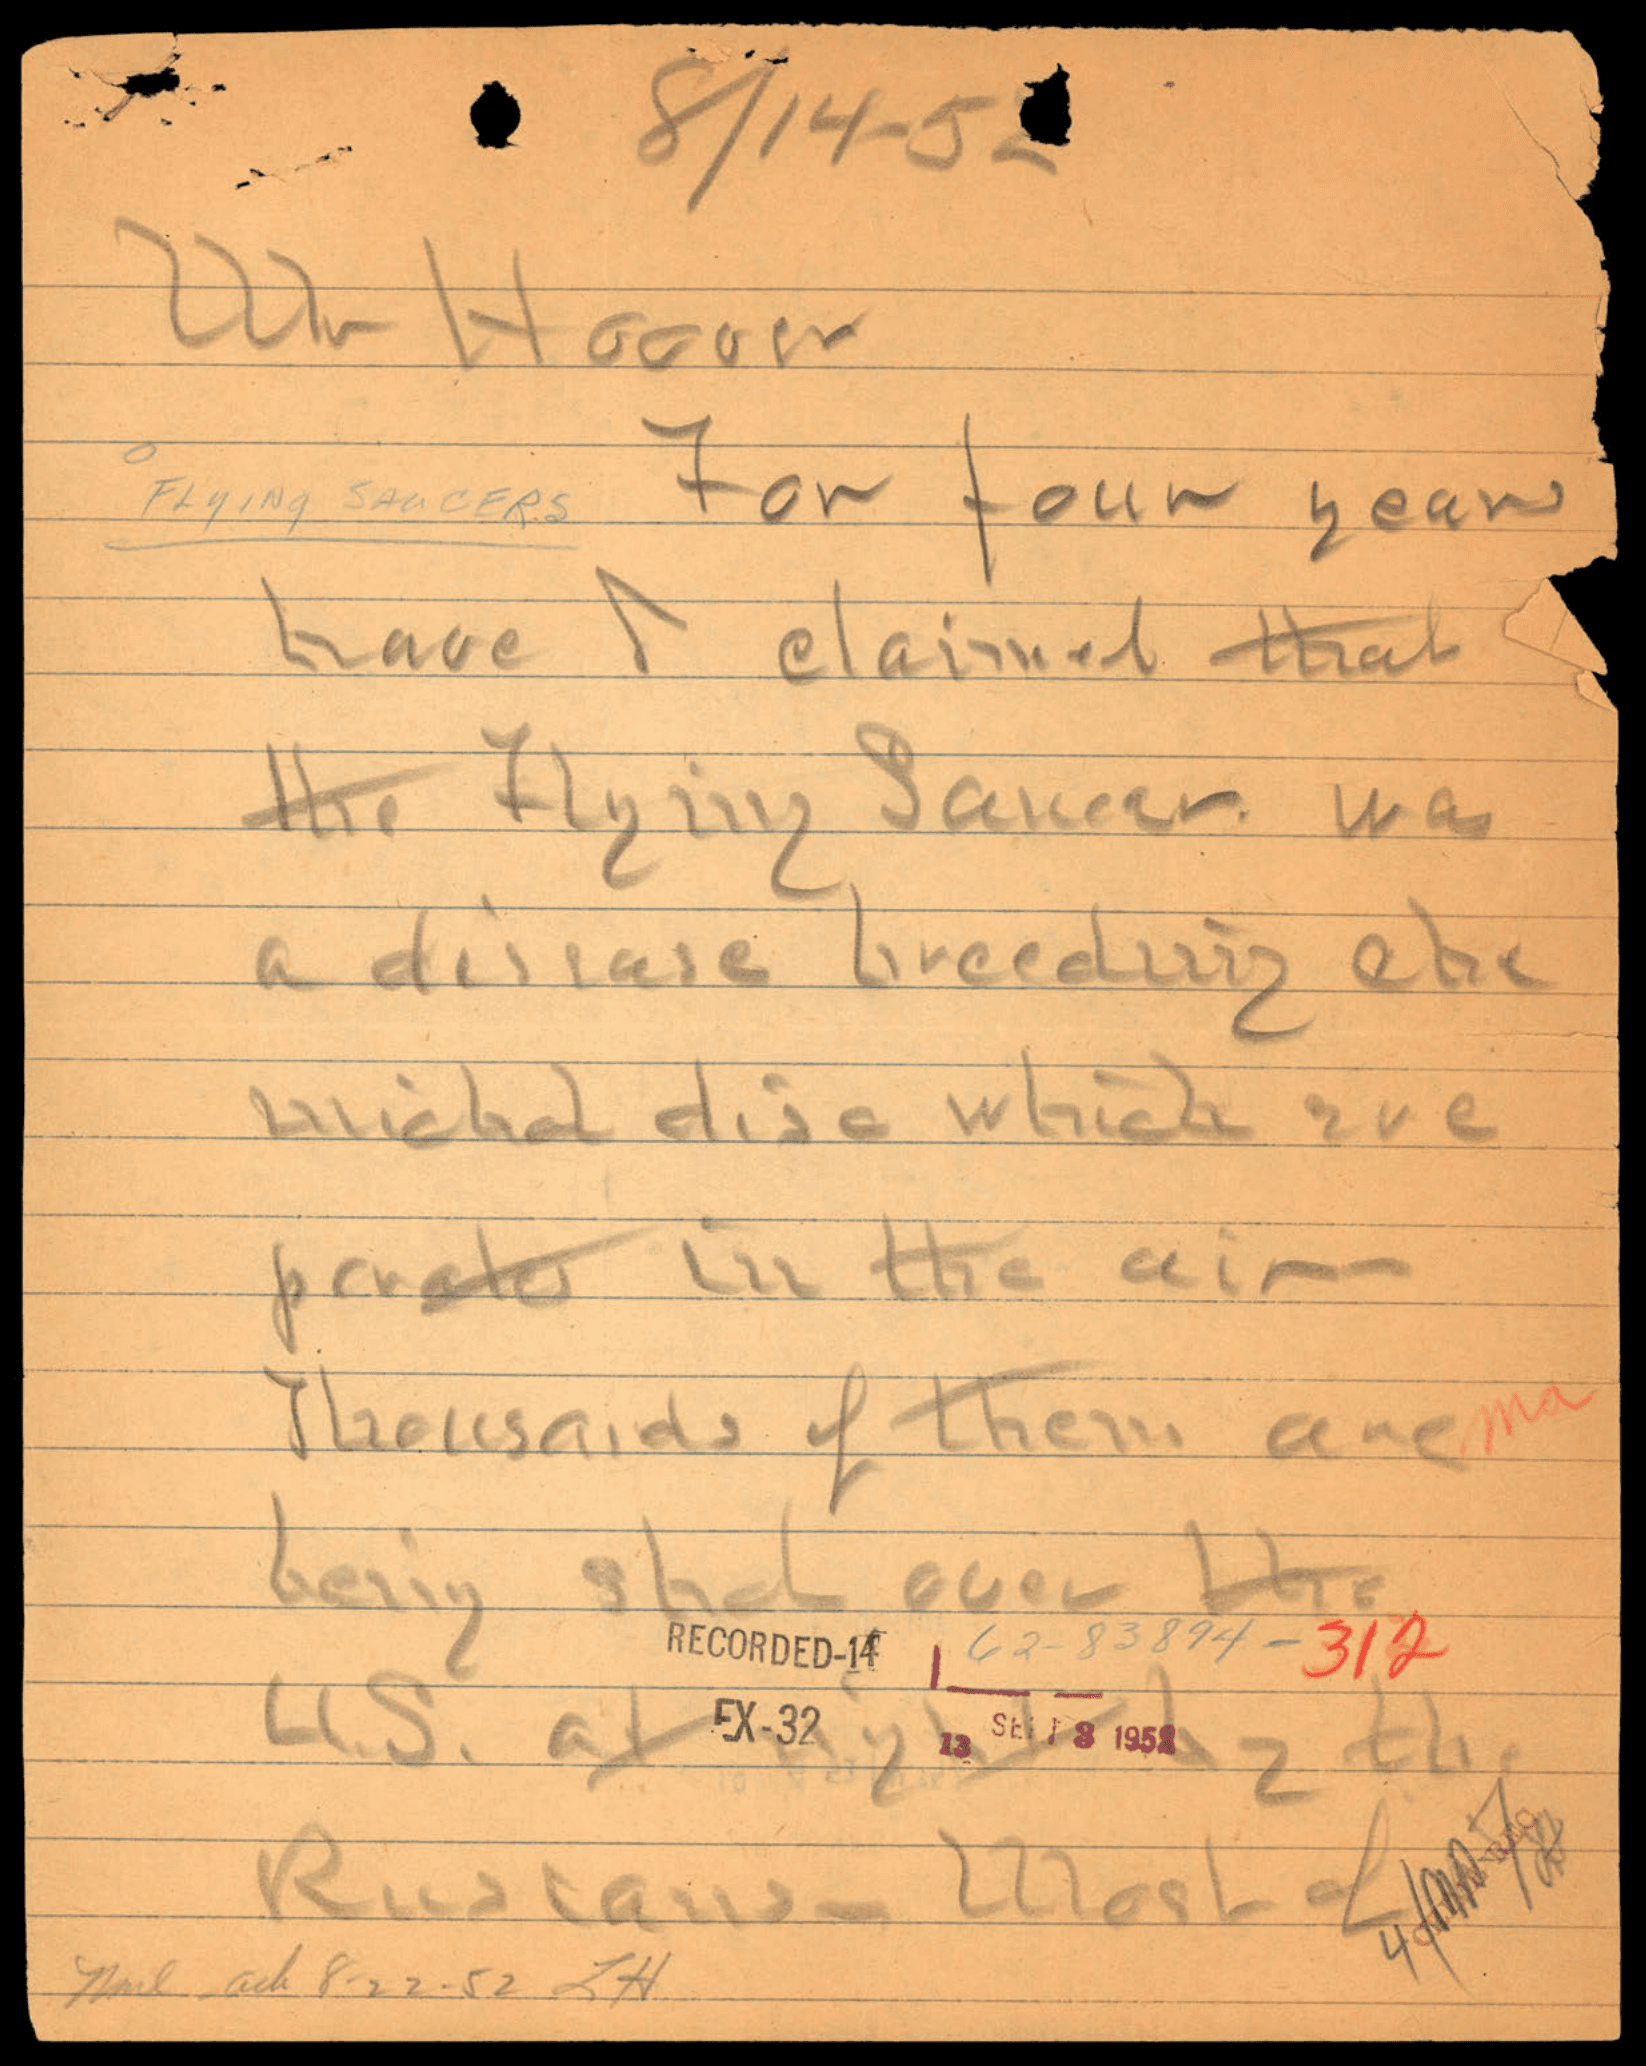 8/14-52
Mr Hoover
FLYING SAUCERS
For four years
have I claimed that
the Flying Saucer was
a disease breeding che
michal disc which eve
perates in the air
Thousands of them are
being shot over the
RECORDED-14
62-83894-312
U.S. at night by the
EX-32
13 SEP 8 1952
Russians - Most of
ack 8-22-52 LH